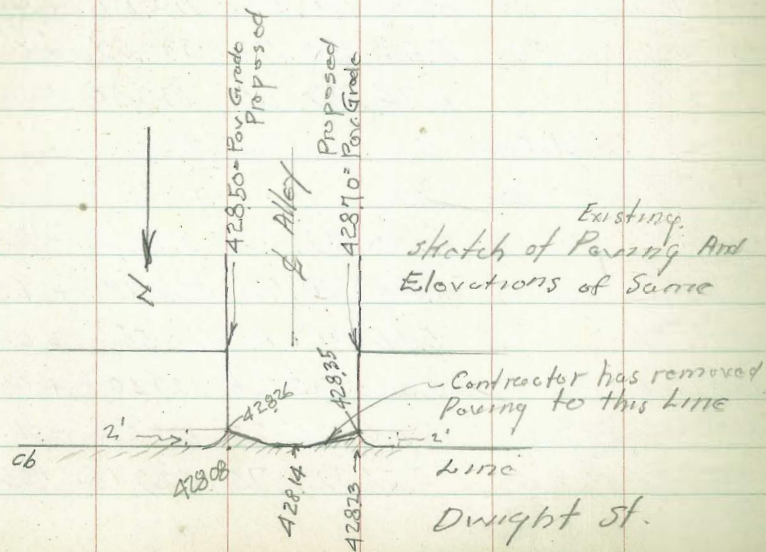 428.50 = Pav. Grade
Proposed
Proposed
428.70 = Pav. Grade
N
℄ Alley
Existing
sketch of Paving And
Elevations of Same
428.26
428.35
Contractor has removed
Paving to this Line
2'
2'
cb
Line
428.08
428.14
428.23
Dwight St.